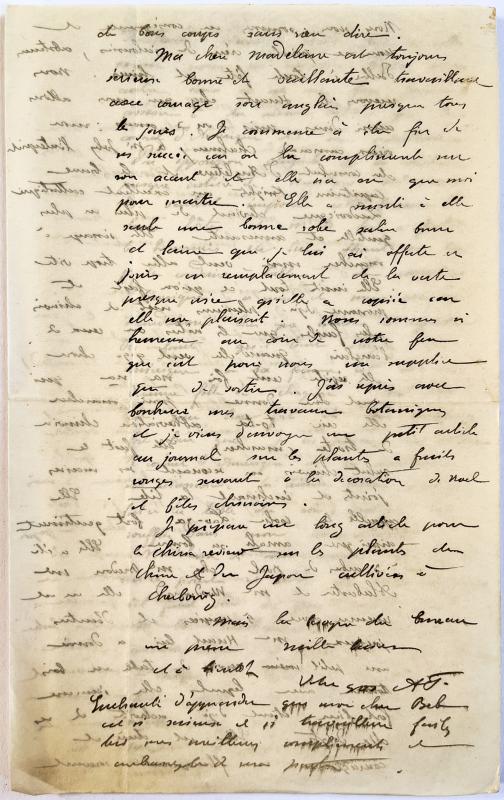 de bons coups sans rien dire.
Ma chère Madeleine est toujours
sérieuse bonne et vaillante travaillant
avec courage son anglais presque tous
les jours. Je commence à être fier de
ses succès car on la complimente sur
son accent et elle n'a eu que moi
pour maître. Elle a monté à elle
seule une bonne robe satin brune
et laine que je lui ai offerte ces
jours en remplacement de la verte
presque usée qu'elle a copiée car
elle me plaisait. Nous sommes si
heureux au coin de notre feu
que c'est pour nous un supplice
que de sortir. J'ai repris avec
bonheur mes travaux botaniques
et je viens d'envoyer un petit article
au journal sur les plantes à fruits
rouges servant à la décoration de noel
et fêtes chinoises.
Je prépare un long article pour
la China review sur les plantes de
Chine et du Japon cultivées à
Cherbourg.
Mais la besogne du bureau
me presse mille baisers
et à bientôt
Votre A.F.
Enchanté d'apprendre que mon cher
est sérieux et travailleur faites
lui mes meilleurs compliments et
embrassez le